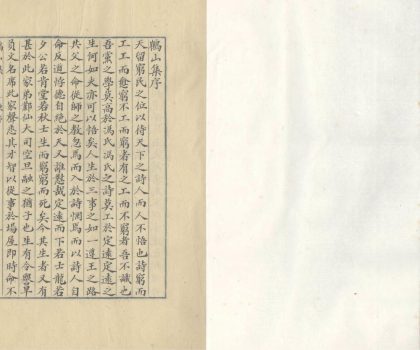 鶴山集序
天留窮民之位以待天下之詩人而人不悟也詩窮而
工工而愈窮不工而窮者有之工而不窮者吾不識也
吾黨之學莫高於馮氏馮氏之詩莫工於定遠定遠之
生何如夫亦可以悟矣人生於三事之如一達王之路
共父之命從師之教忽焉而入於詩惘焉而以詩人自
命反道悖德自絕於天又誰懟哉定遠而下若士龍若
夕公若肯堂若秋士生而窮窮而死矣今其生者又有
甚於此家弟鄧仙大司空旦融之猶子也生有令譽單
貟文名席此家聲憑其才智以從事於場屋即時命不